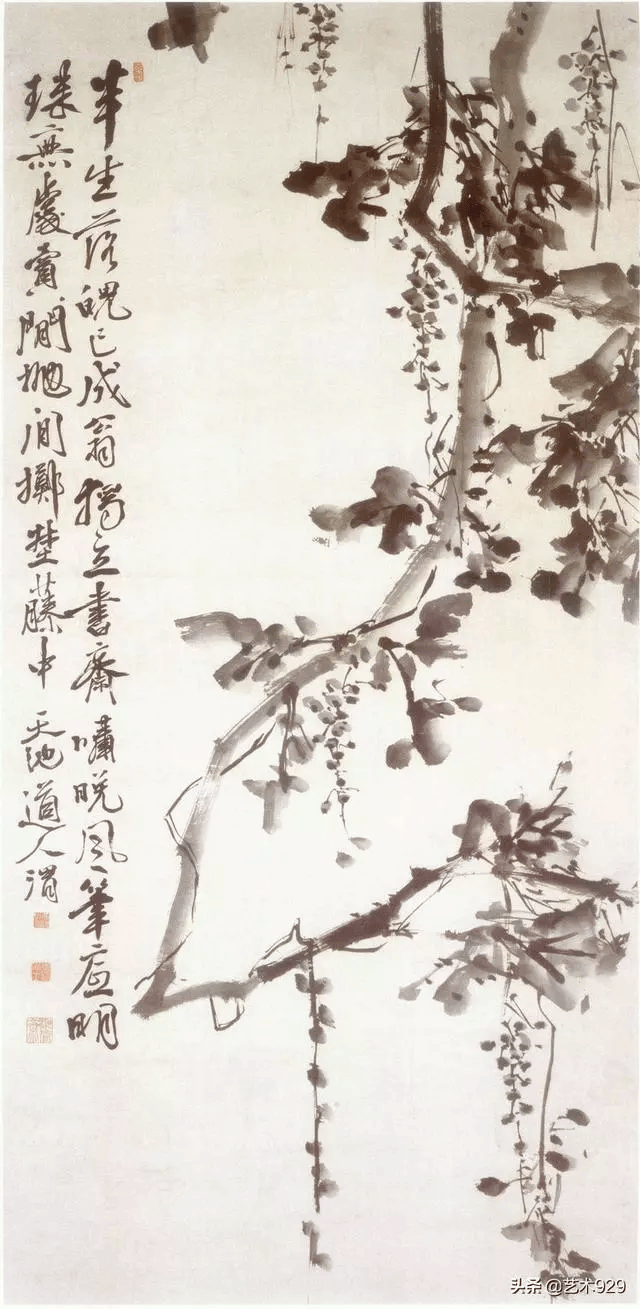 半生落魄已成翁獨立書齋嘯晚風筆底明
珠無處賣閒拋閒擲埜藤中 天池道人渭
头条 @艺术929